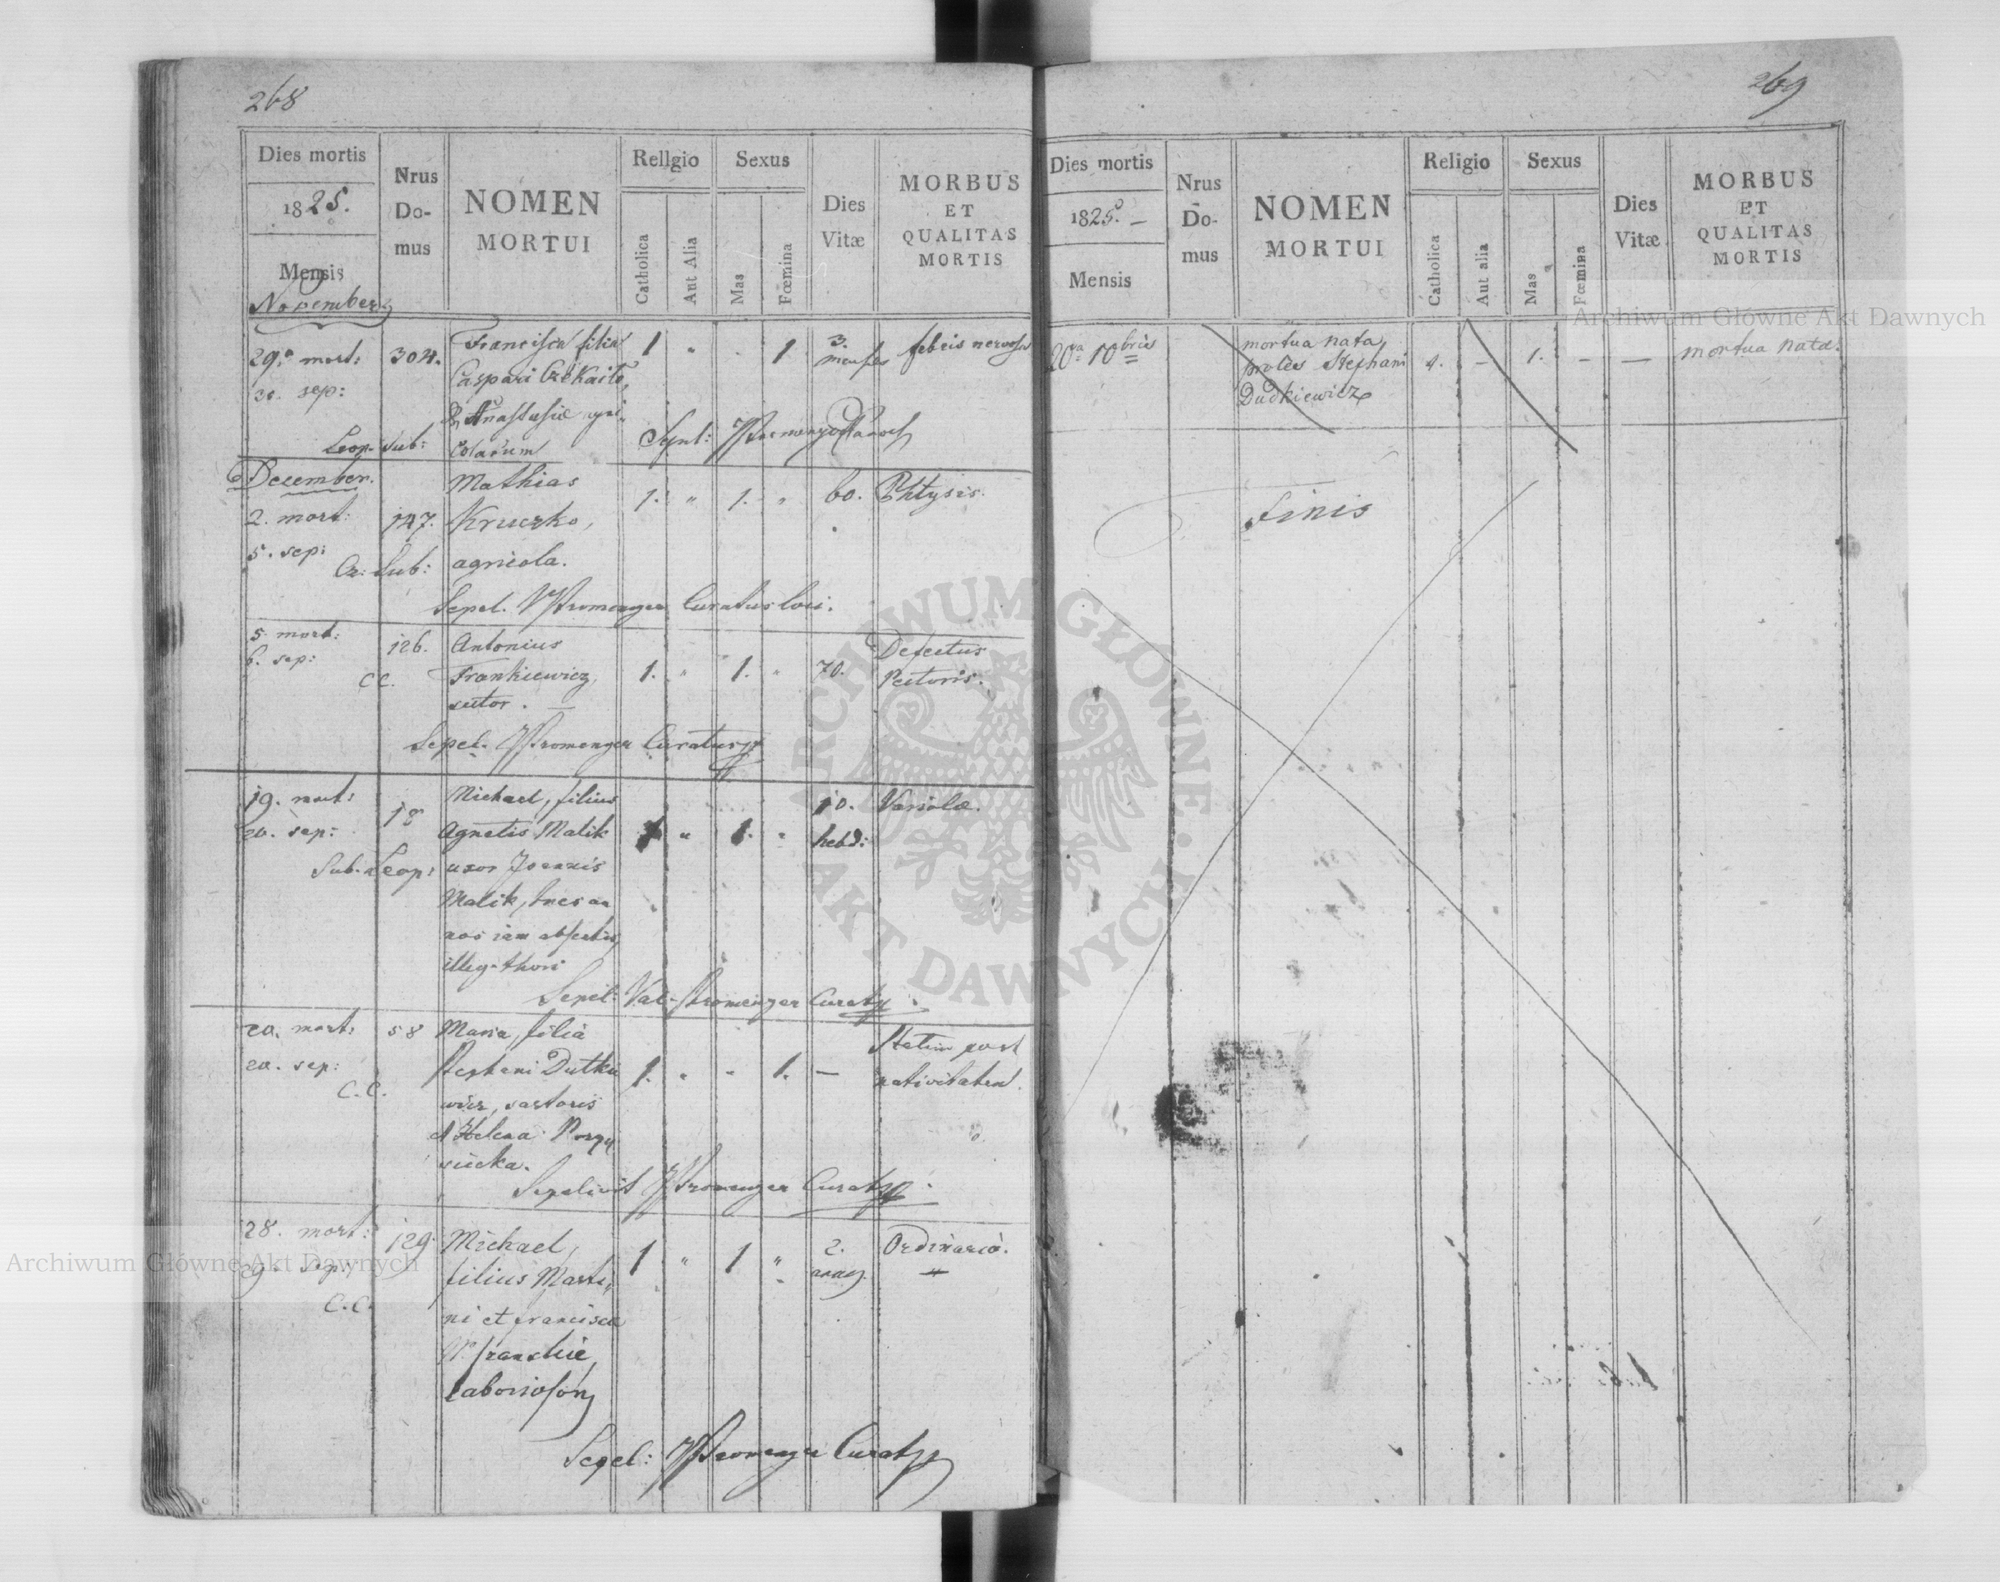 268
Dies mortis
1825.
Mensis
November
Nrus Domus
NOMEN MORTUI
Religio
Catholica
Aut Alia
Sexus
Mas
Fœmina
Dies Vitæ
MORBUS ET QUALITAS MORTIS
29. mort: 304. Francisca filia 1 " . 1 3. menses febris nervosa
30. sep: Caspari
& Anastasiæ agri-
Leop. Sub: colarum
December.
Mathias 1. " 1. " 60. Phtysis.
2. mort: 147. Kruczko,
5. sep:
Sub: agricola.
Sepel. Stromenger Curatus loci.
5. mort: 126. Antonius Defectus
6. sep:
C C. Frankiewicz, 1. " 1. " 70. Pectoris.
sutor.
Sepel. Stromenger Curatus
19. mort: 18 Michael, filius 10. Variolæ.
20. sep: Agnetis Malik " 1. " hebd:
Sub. Leop: uxor Joannis
Malik, tres an
nos iam
illeg. thori
Sepel: Val. Stromenger Curat
20. mort: 58 Maria, filia Statim post
20. sep: Stephani Dutkie 1. " - 1. — nativitatem.
C. C. wicz, sartoris
et Helena
Sepelivit Stromenger Curat
28. mort: 129. Michael, 1 " 1 " 2. Ordinaria.
29. sep: filius Marti-
C. C. ni et Francisca
Sepel: Stromenger Curat
269
Dies mortis
1825. —
Mensis
Nrus Domus
NOMEN MORTUI
Religio
Catholica
Aut alia
Sexus
Mas
Fœmina
Dies Vitæ
MORBUS ET QUALITAS MORTIS
20va 10bris mortua nata 1. — mortua nata.
proles Stephani
Dudkiewicz
Finis
Archiwum Główne Akt Dawnych
Archiwum Główne Akt Dawnych
ARCHIWUM GŁÓWNE AKT DAWNYCH